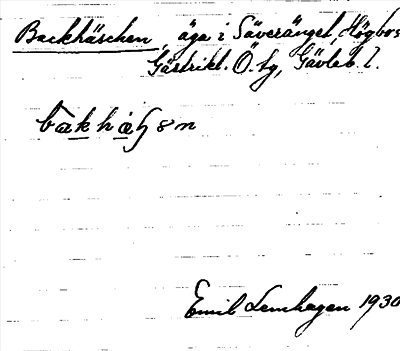 Backhäschen, äga i Säveränget, Högbo s
Gästrikl. Ö. tg, Gävleb. l.
Emil Lemhagen 1930